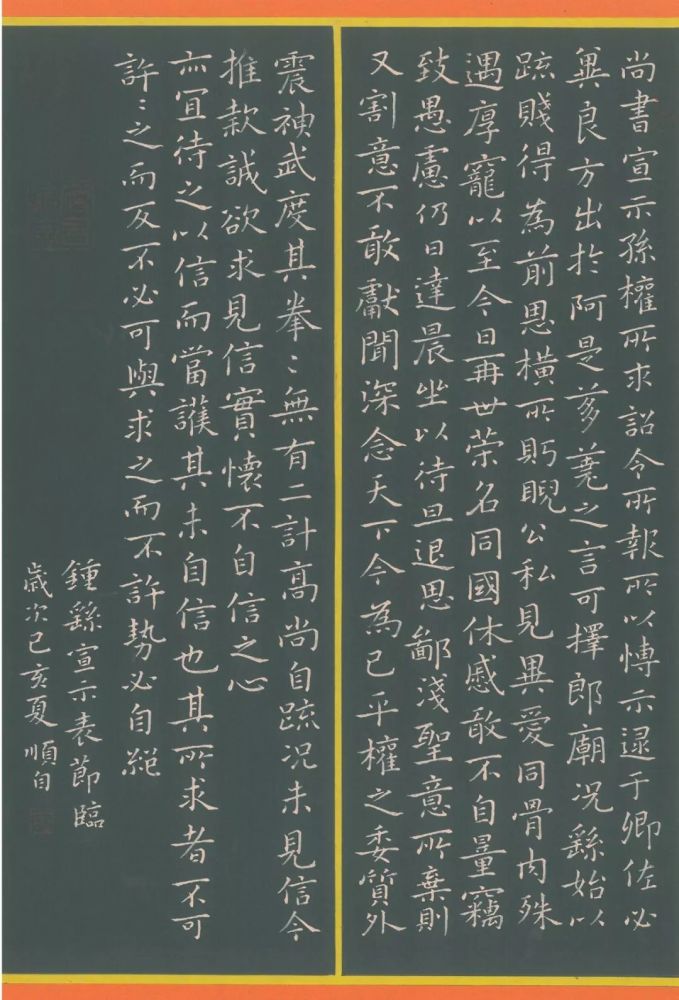 尚書宣示孫權所求詔令所報所以博示逮于卿佐必
冀良方出於阿是芻蕘之言可擇郎廟況繇始以
疏賤得為前恩橫所眄睨公私見異愛同骨肉殊
遇厚寵以至今日再世榮名同國休慼敢不自量竊
致愚慮仍日達晨坐以待旦退思鄙淺聖意所棄則
又割意不敢獻聞深念天下今為已平權之委質外
震神武度其拳〻無有二計高尚自疏況未見信今
推款誠欲求見信實懷不自信之心
亦宜待之以信而當護其未自信也其所求者不可
許〻之而反不必可與求之而不許勢必自絕
鍾繇宣示表節臨
歲次己亥夏順自